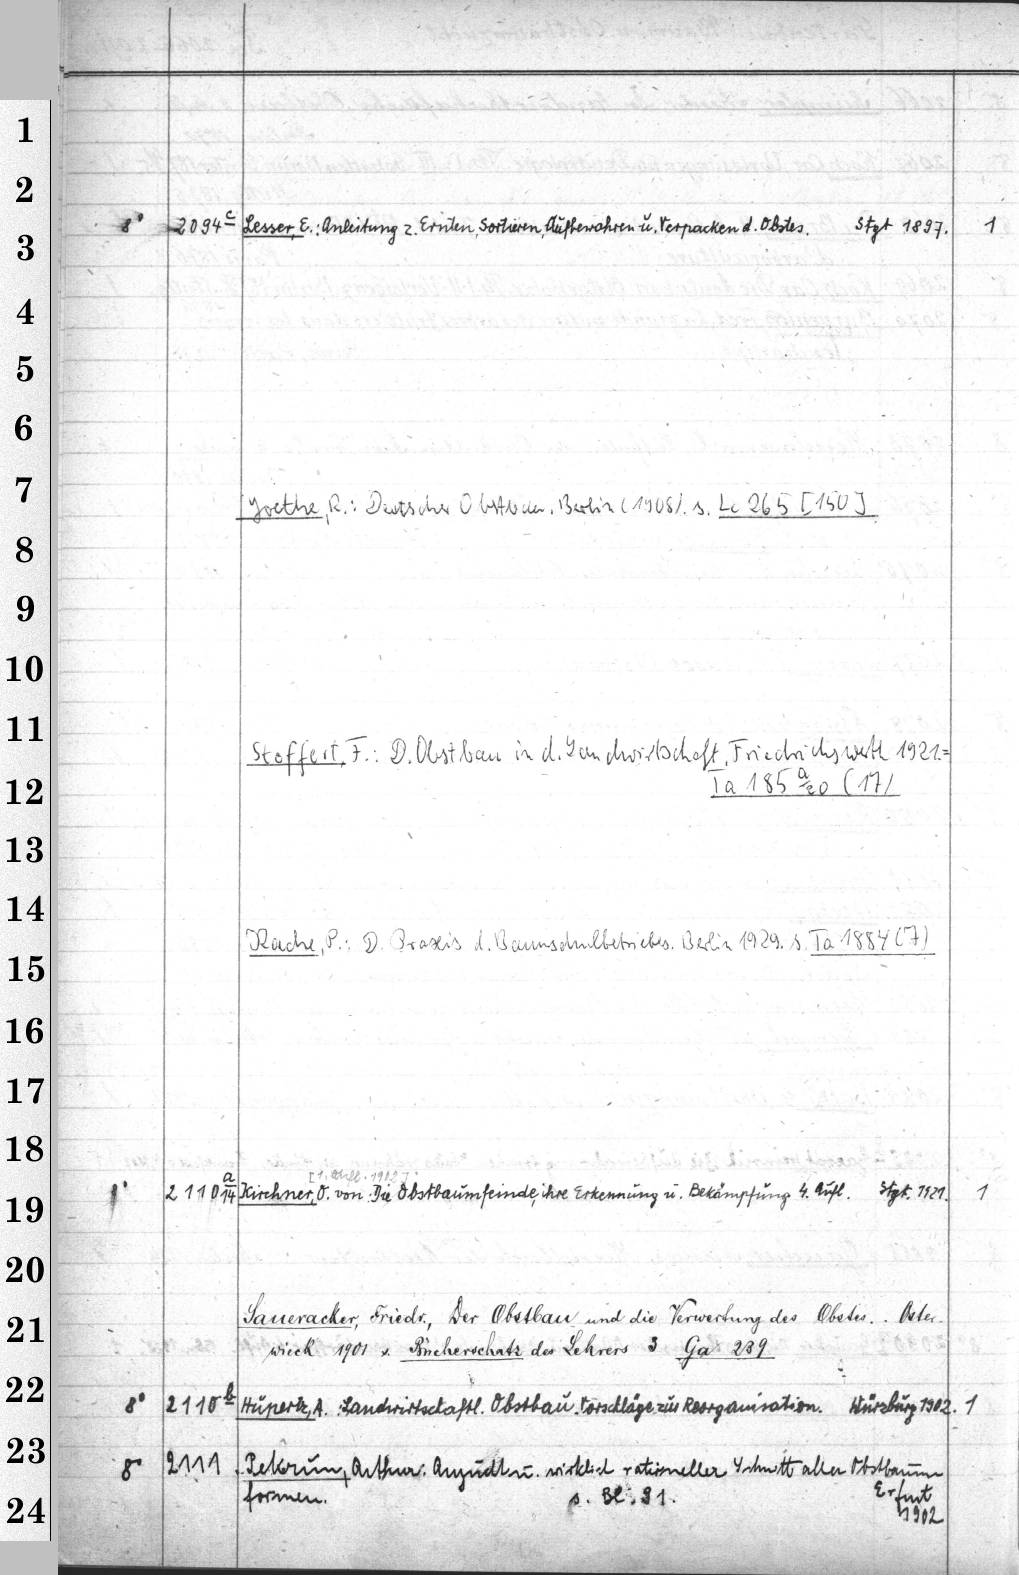 1
2
8° 2094c Lesser, E.: Anleitung z. Ernten, Sortieren, Aufbewahren u. Verpacken d. Obstes. Stgt 1897. 1
3
4
5
6
7
Goethe, R.: Deutscher Obstbau. Berlin (1908). s. Lc 265 [150]
8
9
10
11
Stoffert, F.: D. Obstbau in d. Landwirtschaft. Friedrichswerth 1921.=
12
Ia 185 a/20 (17)
13
14
Kache, P.: D. Praxis d. Baumschulbetriebes. Berlin 1929. s. Ia 1884 (7)
15
16
17
18
[1. Aufl. 1902]
2110 a/14 Kirchner, O. von: Die Obstbaumfeinde, ihre Erkennung u. Bekämpfung 4. Aufl. Stgt. 1921. 1
19
20
Saueracker, Friedr., Der Obstbau und die Verwertung des Obstes. Oster-
21
wieck 1901 s. Bücherschatz des Lehrers 3 Ga 239
22
8° 2110b Hupertz, A.: Landwirtschaftl. Obstbau. Vorschläge zur Reorganisation. Würzburg 1902. 1
23
8° 2111 Pekrun, Arthur: wirklich rationeller Schnitt aller Obstbaum
formen. s. Bl. 31. Erfurt
24
1902